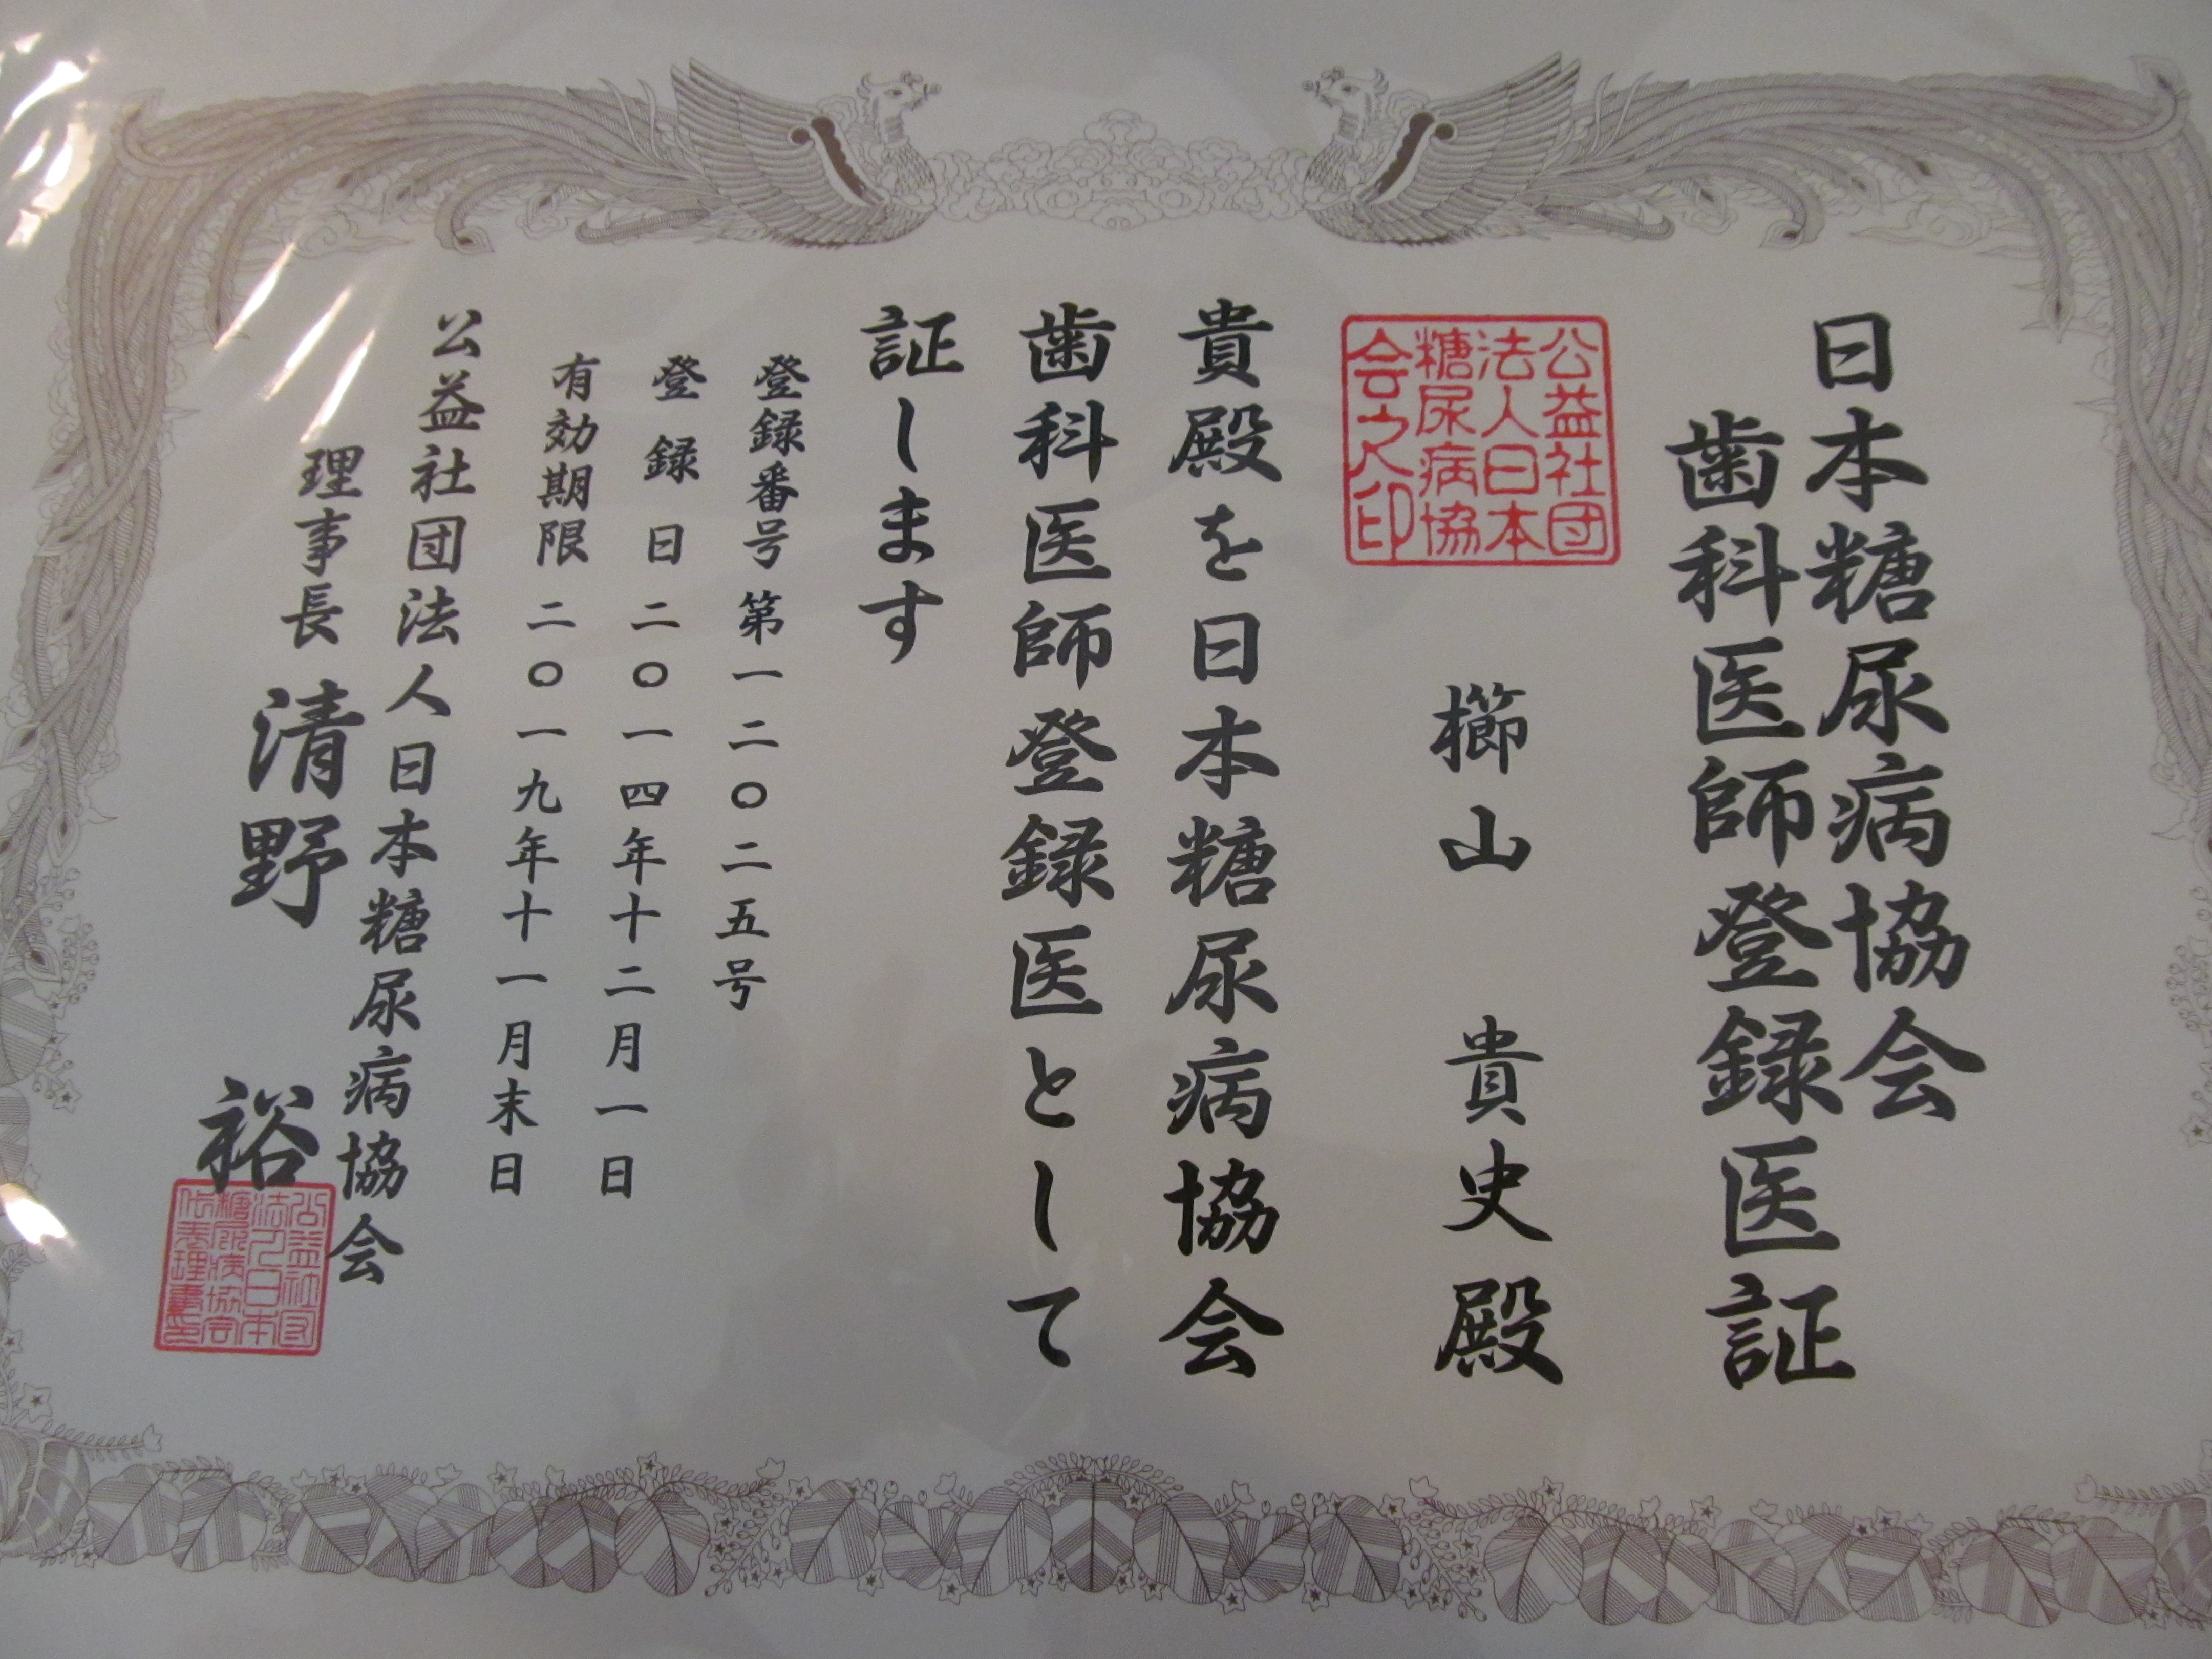 日本糖尿病協会
歯科医師登録医証
公益社団
法人日本
糖尿病協
会之印
櫛山 貴史 殿
貴殿を日本糖尿病協会
歯科医師登録医として
証します
登録番号 第一二〇二五号
登録日 二〇一四年十二月一日
有効期限 二〇一九年十一月末日
公益社団法人日本糖尿病協会
理事長 清野 裕
公益社団
法人日本
糖尿病協会
代表理事印